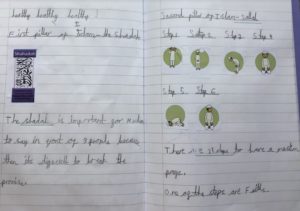 healthy healthy healthy
I
First pillar of Islam- the Shadah
Shahadah
The shadah is important for Muslim
to say in front of people because
then its difficult to break the
promise.
Second pillar of Islam-Salah
Step 1 Step 2 Step 3 Step 4
Step 5 Step 6
There are steps to have a muslim
prayer.
One of the steps are